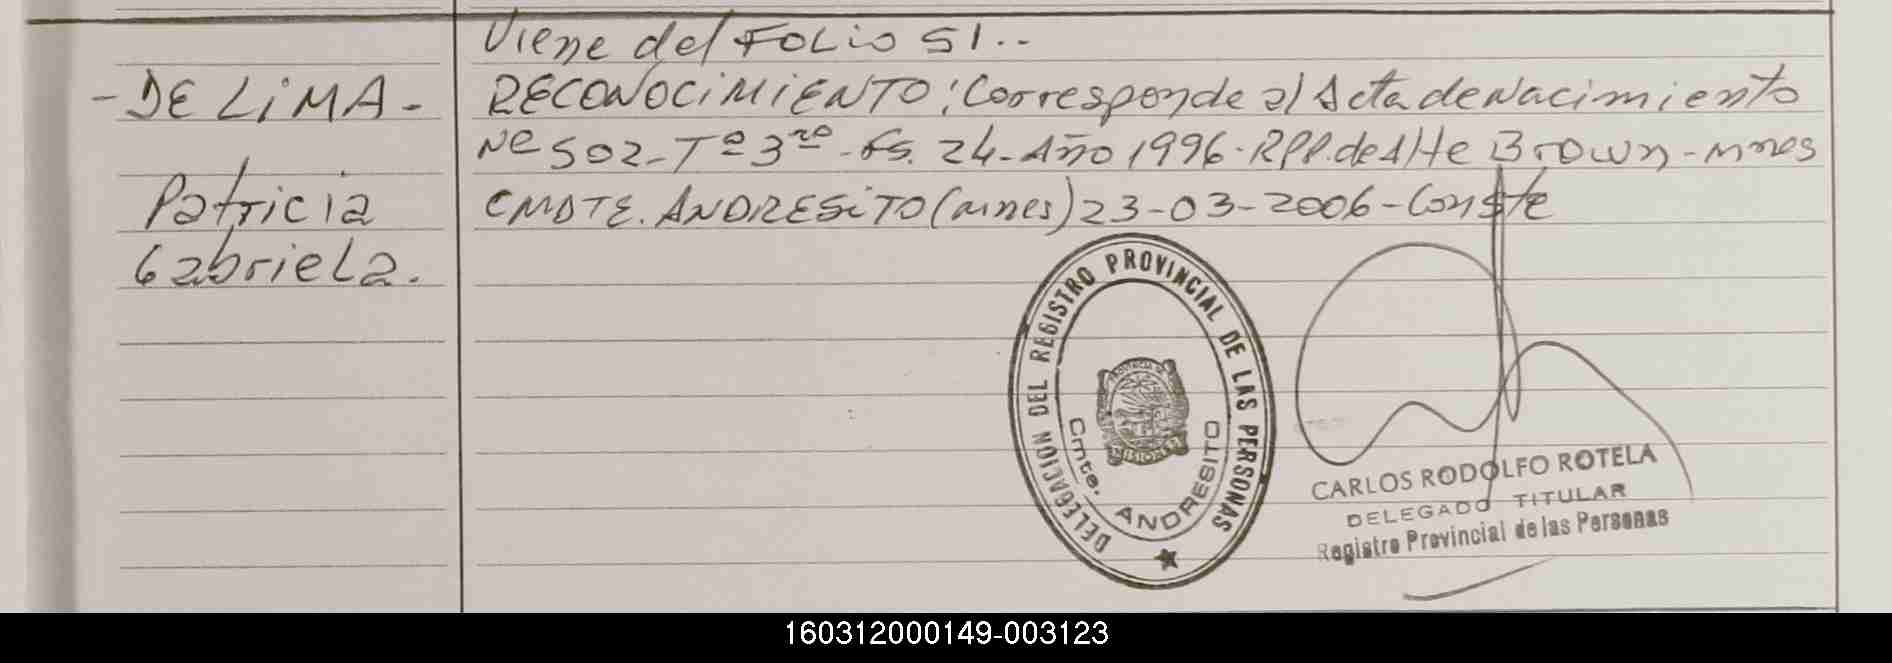 Viene del FOLIO 51..
-DE LIMA-
RECONOCIMIENTO: Corresponde al Acta de Nacimiento
Nº 502-Tº 3ro-Fs. 24-Año 1996-RPP. de Alte Brown-mnes
Patricia
CMDTE. ANDRESITO (mnes) 23-03-2006-Conste
Gabriela.
DELEGACION DEL REGISTRO PROVINCIAL DE LAS PERSONAS
PROVINCIA DE
MISIONES
Cmte. ANDRESITO
CARLOS RODOLFO ROTELA
DELEGADO TITULAR
Registro Provincial de las Personas
160312000149-003123